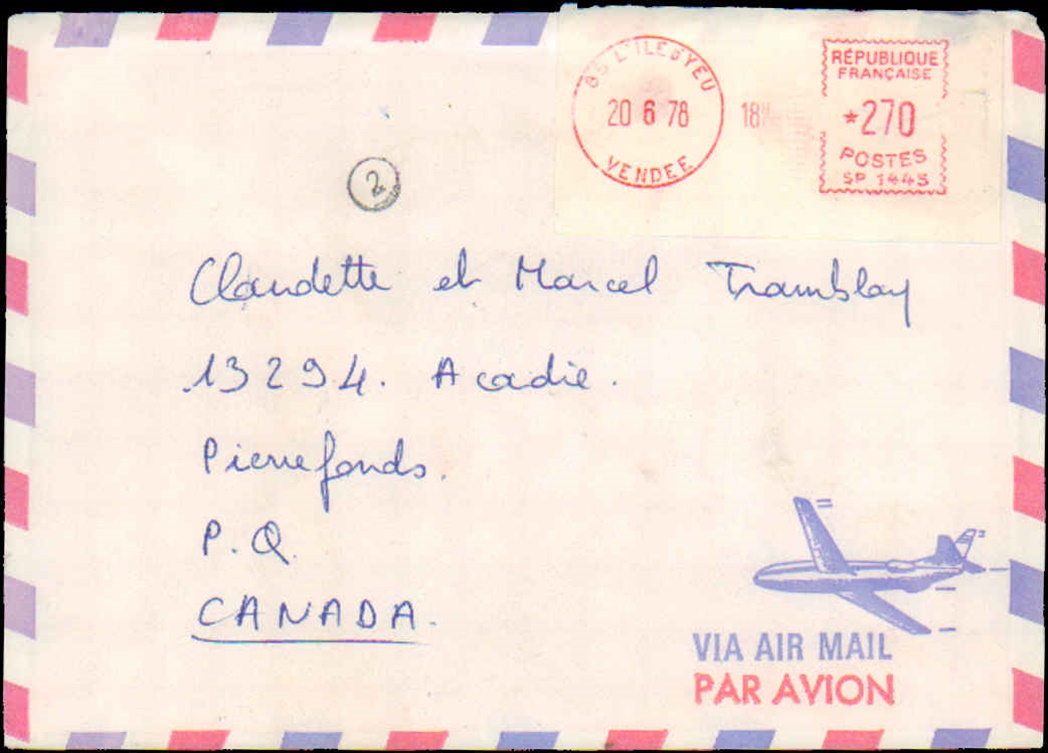 85 L'ILE D'YEU
20 6 78 18H
VENDEE
RÉPUBLIQUE
FRANÇAISE
*270
POSTES
SP 1445
2
Claudette et Marcel Tramblay
13294. Acadie.
Pierrefonds.
P.Q.
CANADA.
VIA AIR MAIL
PAR AVION